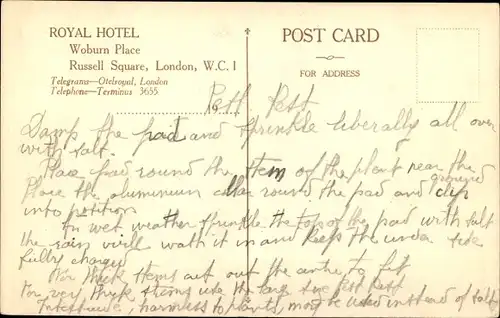 ROYAL HOTEL
Woburn Place
Russell Square, London, W.C.1
Telegrams—Otelroyal, London
Telephone—Terminus 3655.
POST CARD
FOR ADDRESS
Pest Pest
Damp the pad and sprinkle liberally all over
with salt.
Place pad round the stem of the plant near the ground
Place the aluminium collar round the pad and clip
into position
In wet weather sprinkle the top of the pad with salt
the rain will wash it in and keep the under side
fully charged
For thick stems cut out the centre to fit
For very thick stems use the large size Pest Pest
, harmless to plants, may be used instead of salt